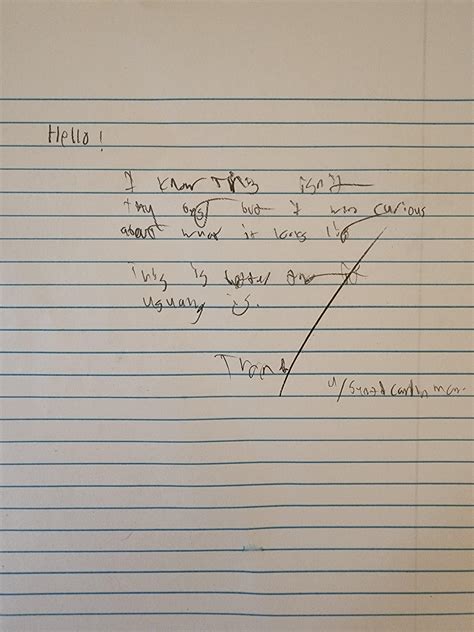 Hello!
I know this isn't
my best but I was curious
about what it looks like
This is better than it
usually is.